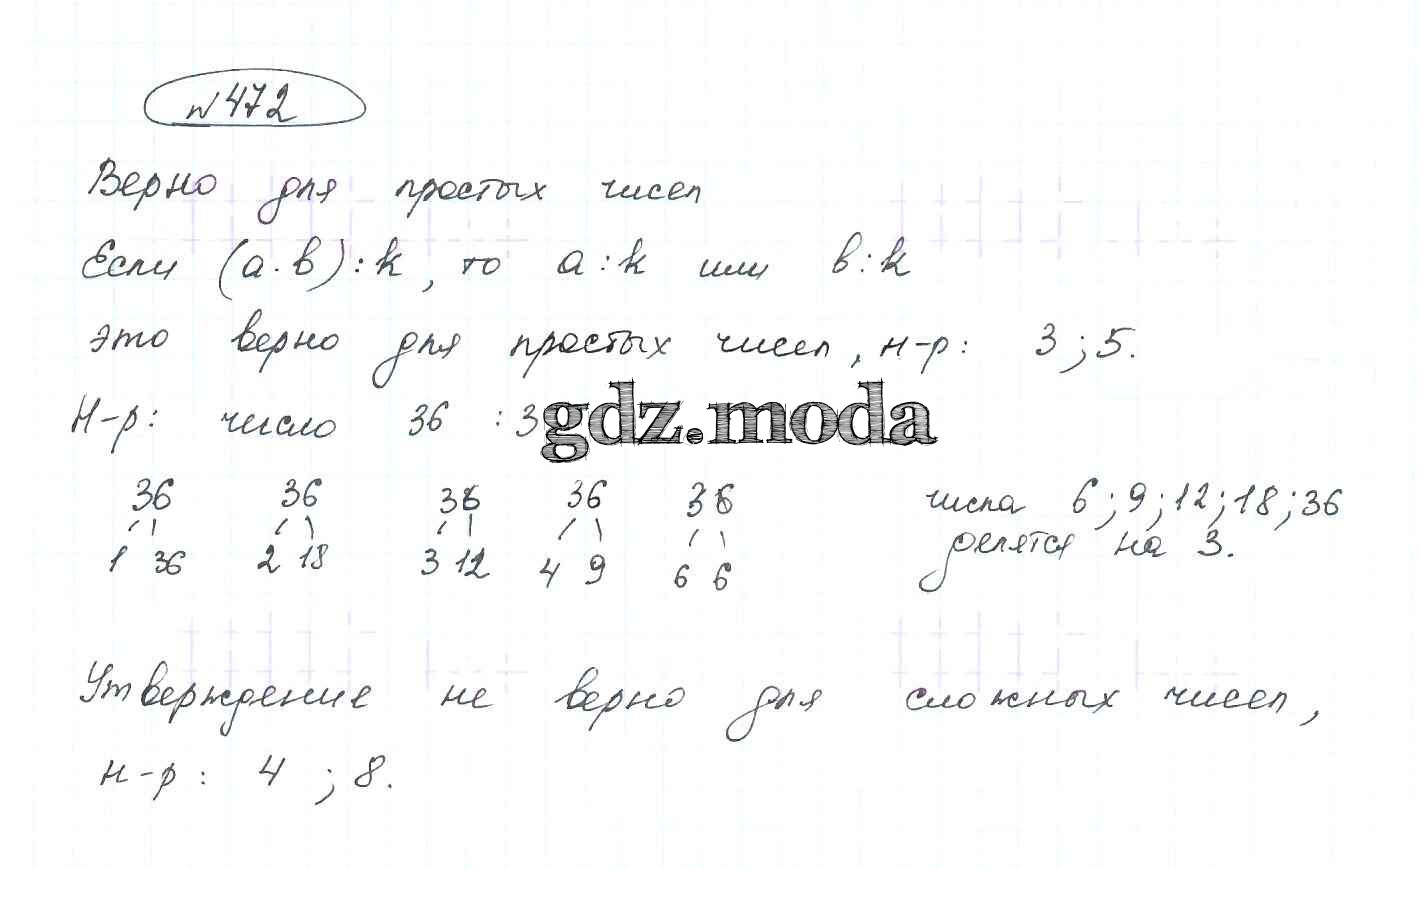 № 472
Верно для простых чисел
Если (а·в):k, то а:k или в:k
это верно для простых чисел, н-р: 3;5.
Н-р: число 36 :3
gdz.moda
36 36 36 36 36
1 36 2 18 3 12 4 9 6 6
числа 6;9;12;18;36
делятся на 3.
Утверждение не верно для сложных чисел,
н-р: 4 ;8.